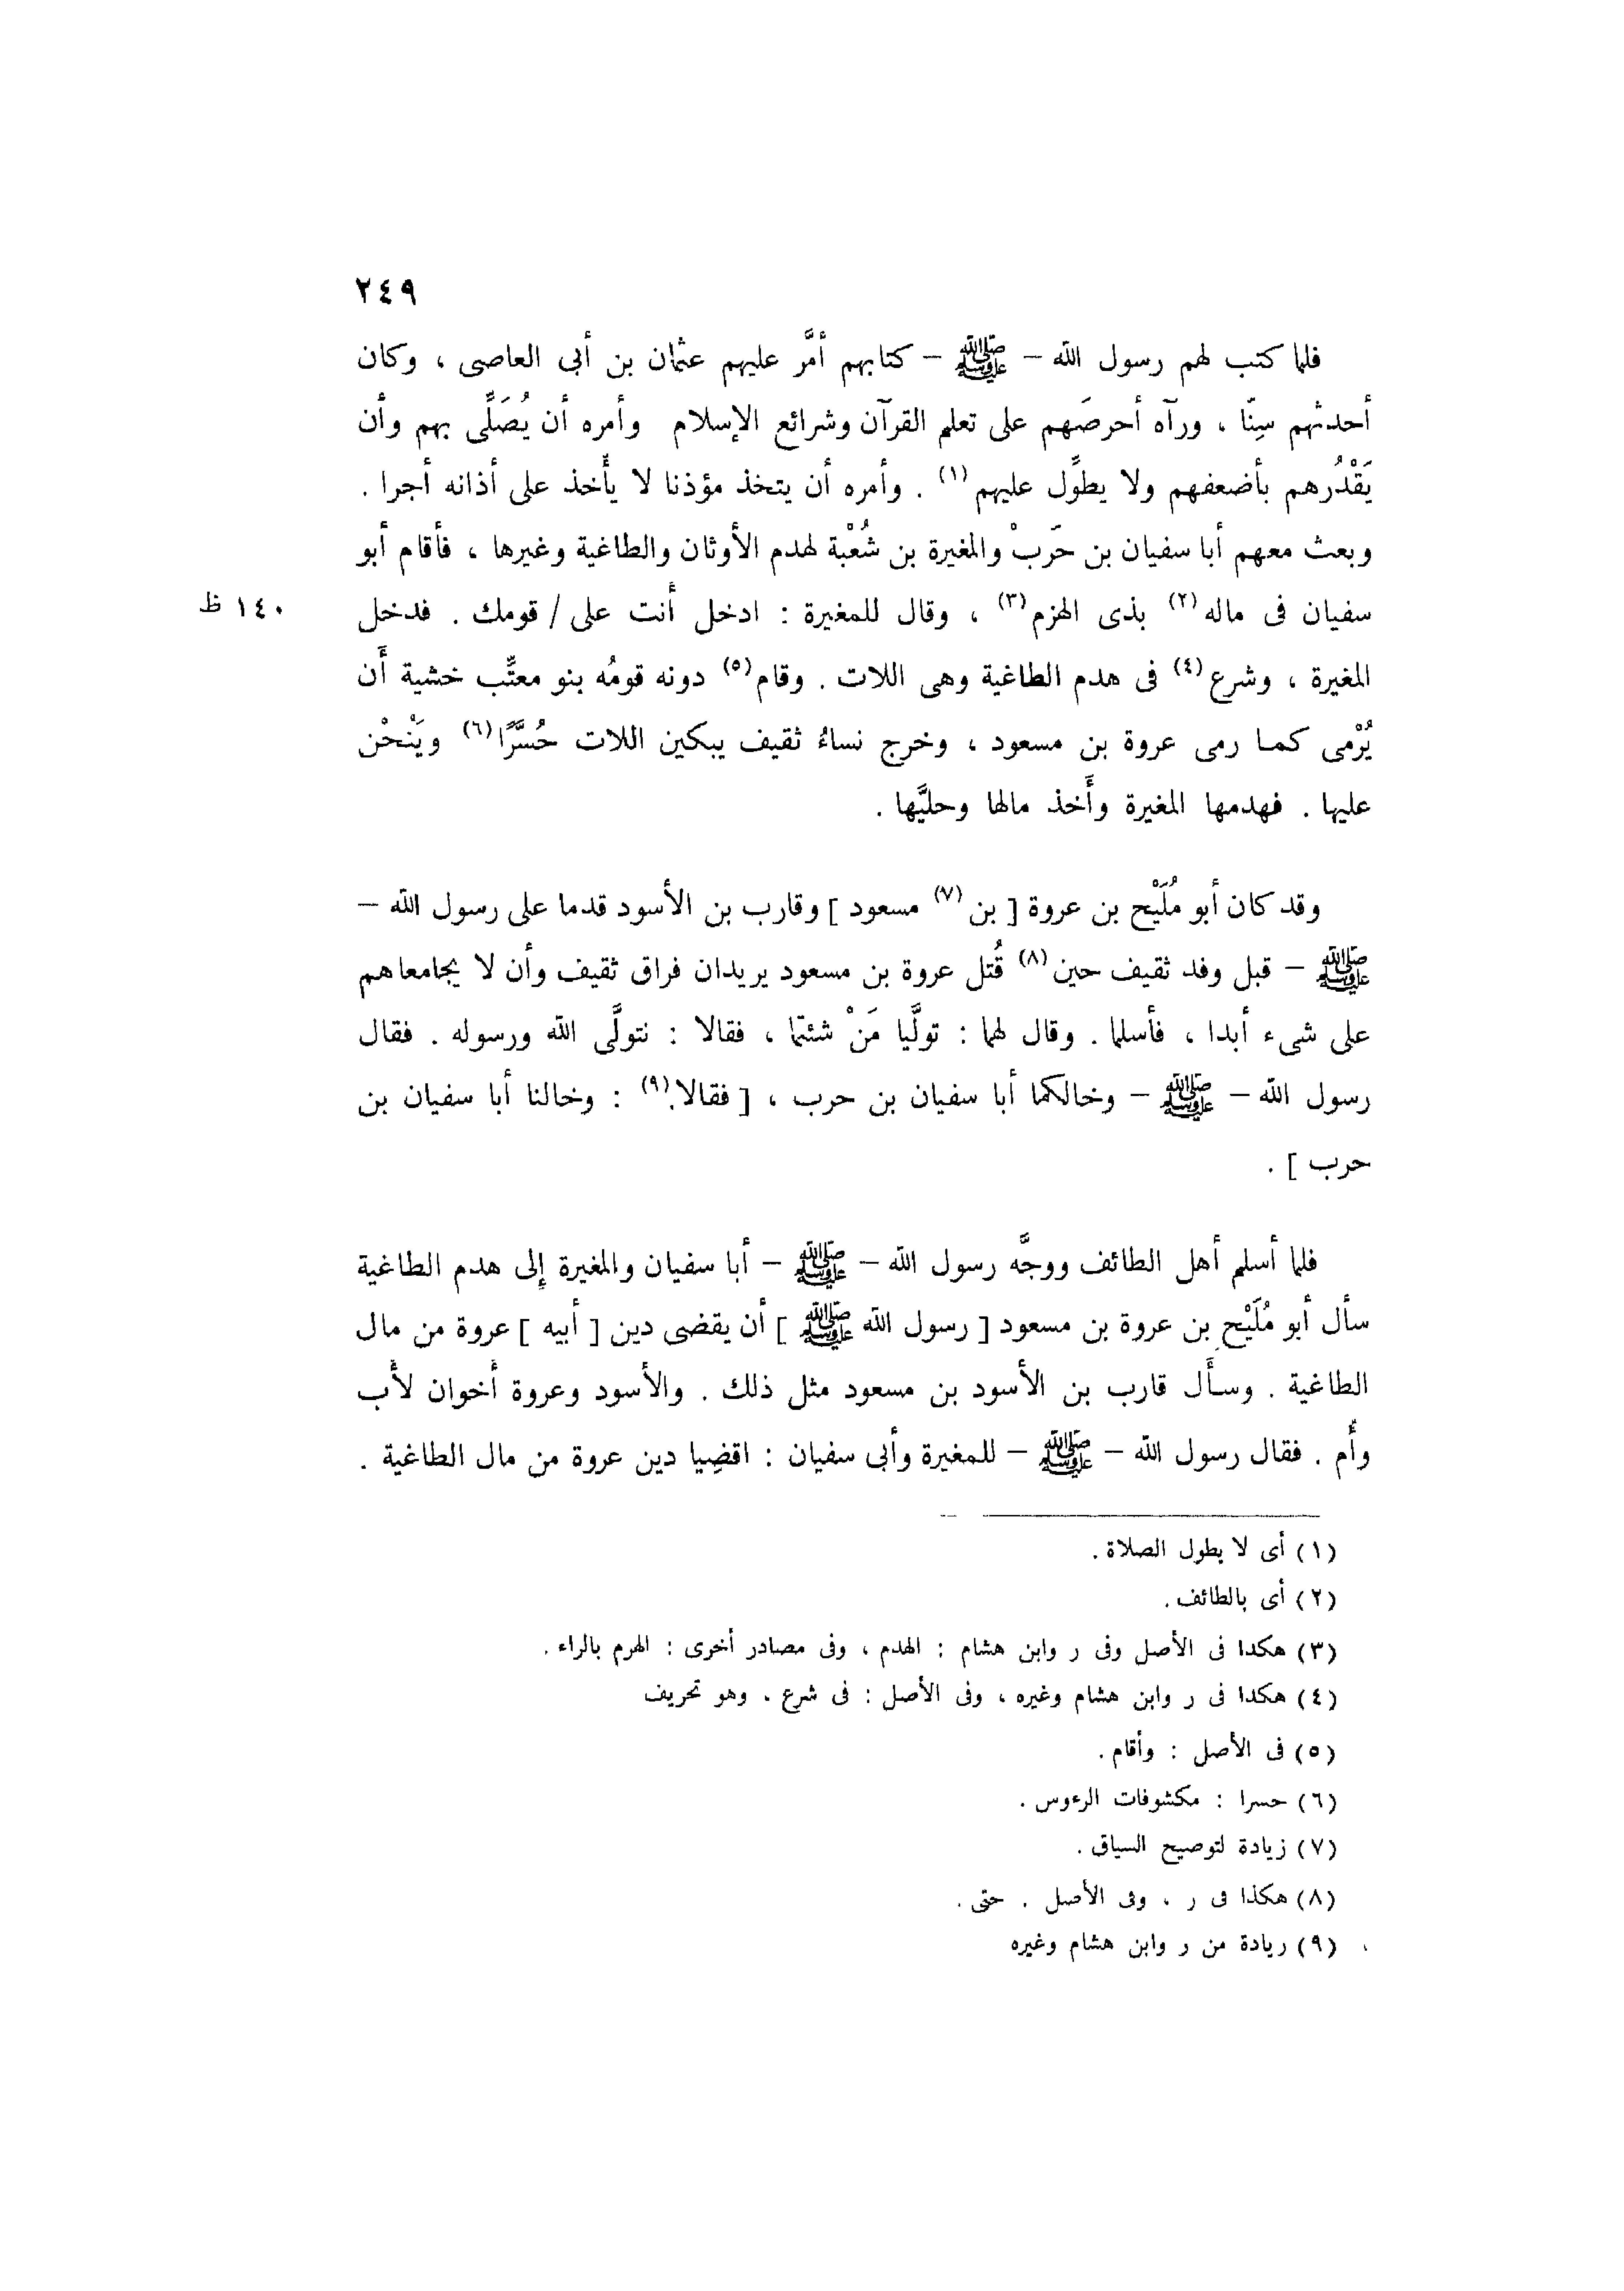 ٢٤٩
فلما كتب لهم رسول الله – ﷺ – كتابهم أمَّر عليهم عثمان بن أبى العاصى ، وكان
أحدثهم سِنًا ، ورآه أحرصَهم على تعلم القرآن وشرائع الإسلام وأمره أن يُصَلِّى بهم وأن
يَقْدُرهم بأضعفهم ولا يطوِّل عليهم(١) . وأمره أن يتخذ مؤذنا لا يأخذ على أذانه أجرا .
وبعث معهم أبا سفيان بن حَربْ والمغيرة بن شُعْبة لهدم الأوثان والطاغية وغيرها ، فأقام أبو
سفيان فى ماله(٢) بذى الهزم(٣) ، وقال للمغيرة : ادخل أَنت على / قومك . فدخل
١٤٠ ظ
المغيرة ، وشرع(٤) فى هدم الطاغية وهى اللات . وقام(٥) دونه قومُه بنو معتِّب خشية أَن
يُرْمى كما رمى عروة بن مسعود ، وخرج نساءُ ثقيف يبكين اللات حُسَّرًا(٦) ويَنْحْن
عليها . فهدمها المغيرة وأَخذ مالها وحليَّها .
وقد كان أبو مُلَيْح بن عروة [ بن(٧) مسعود ] وقارب بن الأسود قدما على رسول الله –
ﷺ – قبل وفد ثقيف حين(٨) قُتل عروة بن مسعود يريدان فراق ثقيف وأن لا يجامعاهم
على شىء أبدا ، فأسلما . وقال لهما : تولَّيا مَنْ شئتما ، فقالا : نتولَّى الله ورسوله . فقال
رسول الله – ﷺ – وخالكما أبا سفيان بن حرب ، [ فقالا(٩) : وخالنا أبا سفيان بن
حرب ] .
فلما أسلم أهل الطائف ووجَّه رسول الله – ﷺ – أبا سفيان والمغيرة إلى هدم الطاغية
سأل أبو مُلَيْح بن عروة بن مسعود [ رسول الله ﷺ ] أن يقضى دين [ أبيه ] عروة من مال
الطاغية . وسأَل قارب بن الأسود بن مسعود مثل ذلك . والأسود وعروة أخوان لأب
وأُم . فقال رسول الله – ﷺ – للمغيرة وأبى سفيان : اقضِيا دين عروة من مال الطاغية .
(١) أى لا يطول الصلاة .
(٢) أى بالطائف .
(٣) هكدا فى الأصل وفى ر وابن هشام : الهدم ، وفى مصادر أخرى : الهرم بالراء .
(٤) هكدا فى ر وابن هشام وغيره ، وفى الأصل : فى شرع . وهو تحريف
(٥) فى الأصل : وأقام .
(٦) حسرا : مكشوفات الرءوس .
(٧) زيادة لتوصيح السياق .
(٨) هكذا فى ر ، وفى الأصل . حتى .
(٩) ريادة من ر وابن هشام وغيره